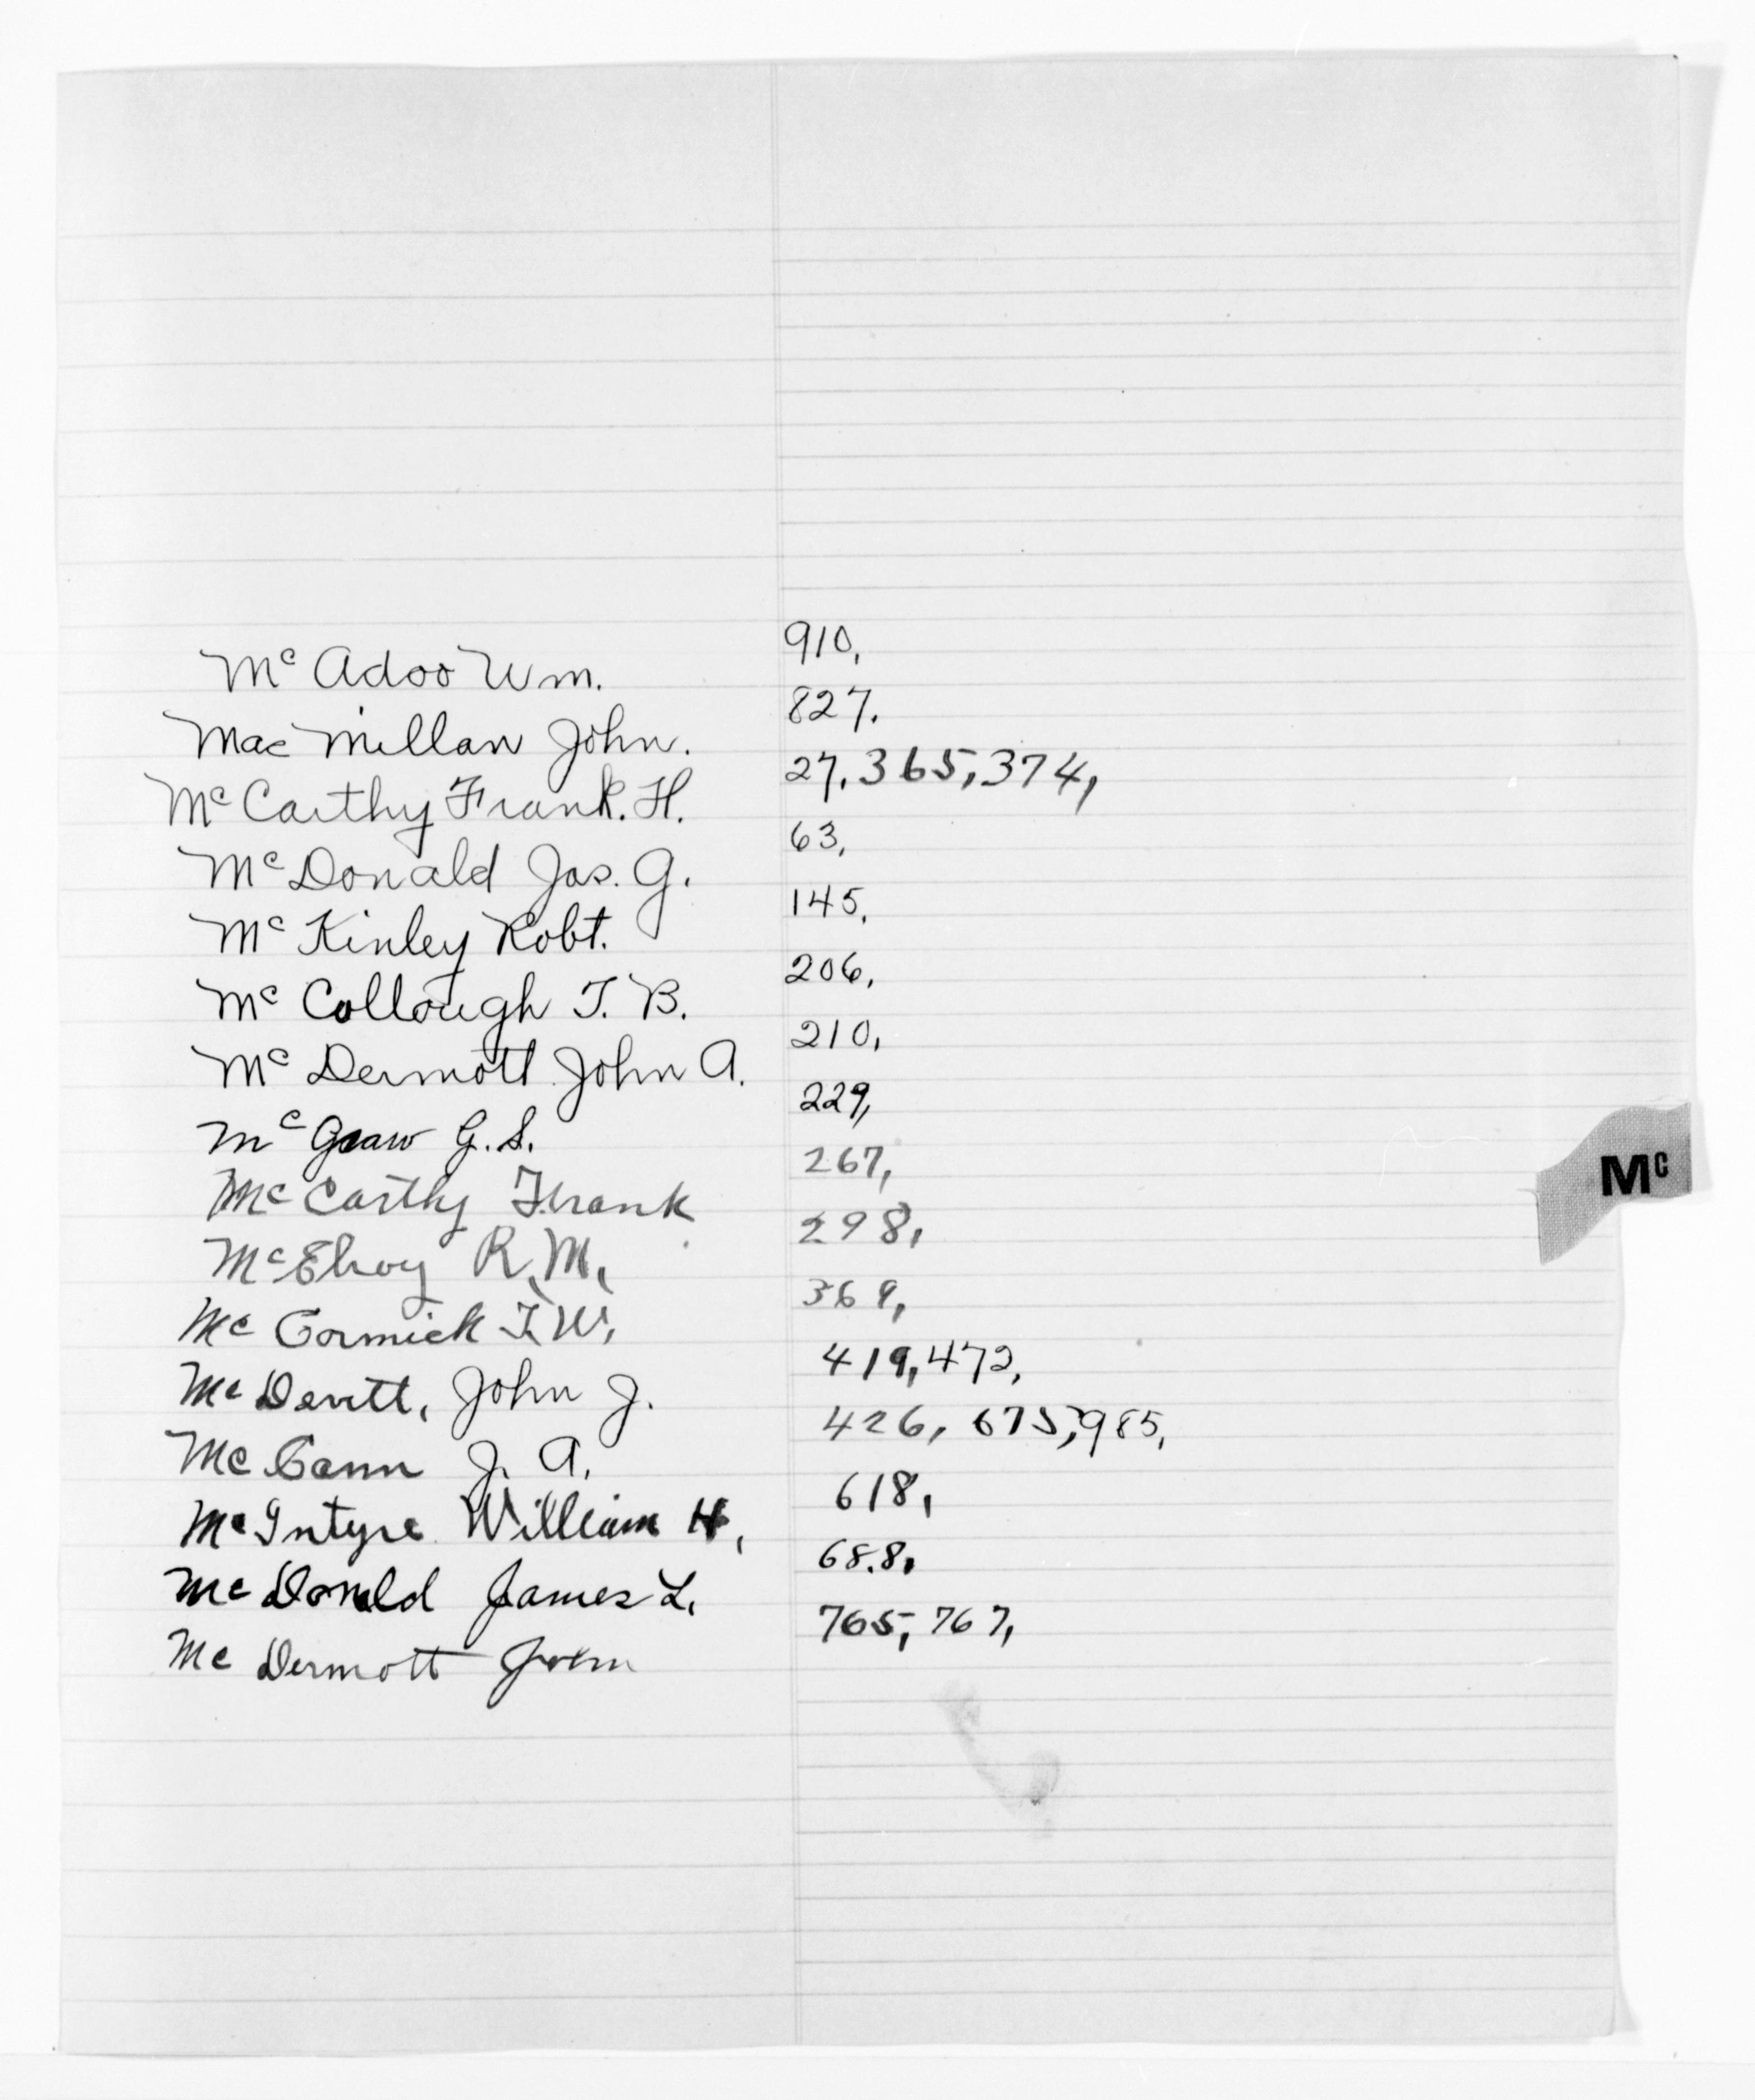 McAdoo Wm. 910,
Mac Millan John. 827.
McCarthy Frank. H. 27, 365, 374,
McDonald Jas. G. 63,
McKinley Robt. 145,
McCollough T. B. 206,
McDermott John A. 210,
McGraw G. S. 229,
McCarthy Frank 267,
McElroy R. M. 298,
McCormick T. W. 369,
McDevitt, John J. 419, 472,
McCann J. A. 426, 675, 985,
McIntyre William H, 618,
McDonald James L. 688,
McDermott John 765, 767,
Mc